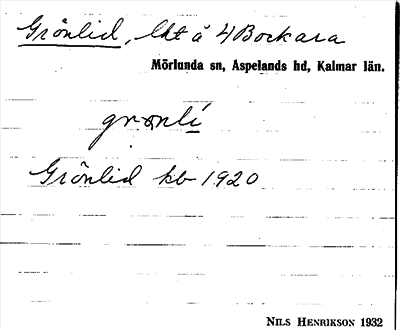 Grönlid, lht å 4 Bockara
Mörlunda sn, Aspelands hd, Kalmar län.
grønlí
Grönlid kb 1920
NILS HENRIKSON 1932